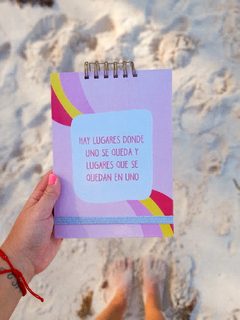 HAY LUGARES DONDE
UNO SE QUEDA Y
LUGARES QUE SE
QUEDAN EN UNO